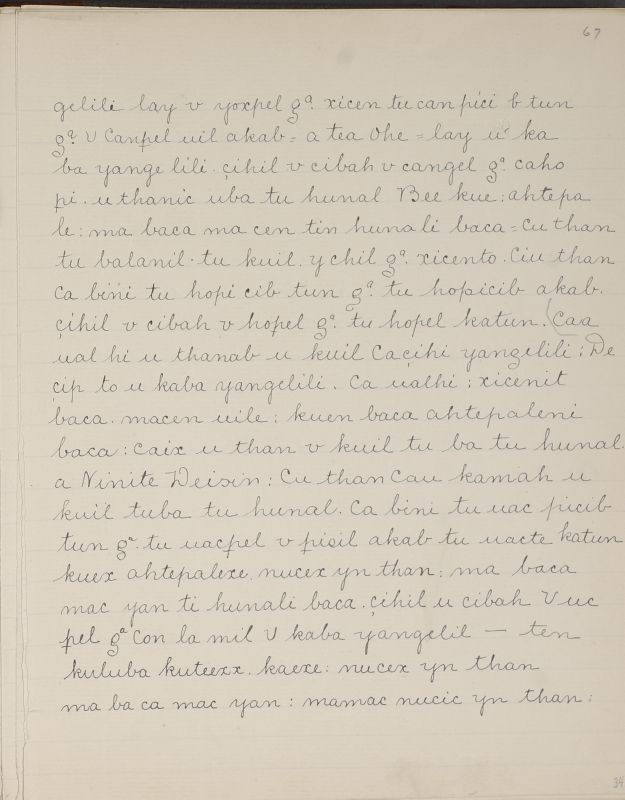 67
gelili lay v yoxpel gª. xicen tu can pici b tun
gª. U Canpel uil akab = a tea Ohe = lay u ka
ba yange lili. çihil v cibah v cangel gª. caho
pi. u thanic uba tu hunal Bee kue: ahtepa
le: ma baca ma cen tin hunali baca = Cu than
tu balanil. tu kuil. y chil gª. xicento. Ciu than
Ca bini tu hopi cib tun gª. tu hopicib akab.
çihil v cibah v hopel gª. tu hopel katun. (Caa
ual hi u thanab u kuil Caçihi yangelili: De
çip to u kaba yangelili. Ca ualhi: xicenit
baca. macen uile: kuen baca ahtepaleni
baca: caix u than v kuil tu ba tu hunal.
a Ninite Deisin: Cu than Cau kamah u
kuil tuba tu hunal. Ca bini tu uac picib
tun gª. tu uacpel v pisil akab tu uacte katun
kuex ahtepalexe. nucex yn than: ma baca
mac yan ti hunali baca. çihil u cibah U uc
pel gª Con la mil U kaba yangelil — ten
kuluba kuteexx. kaexe: nucex yn than
ma ba ca mac yan: mamac nucic yn than:
34